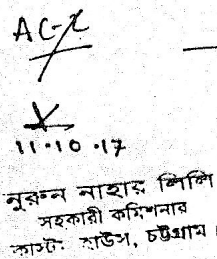 AC-2
11.10.17
নুরুন নাহার লিলি
সহকারী কমিশনার
কাস্টম হাউস, চট্টগ্রাম।